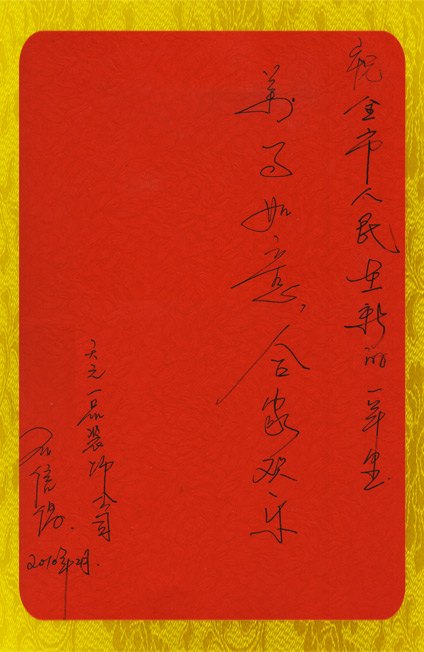 祝全市人民在新的一年里
万事如意，合家欢乐
天元一品装饰公司
石信阳.
2010年2月.